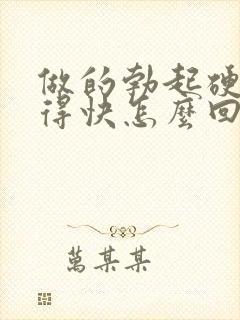 做的勃起硬
得快怎麼回
萬某某